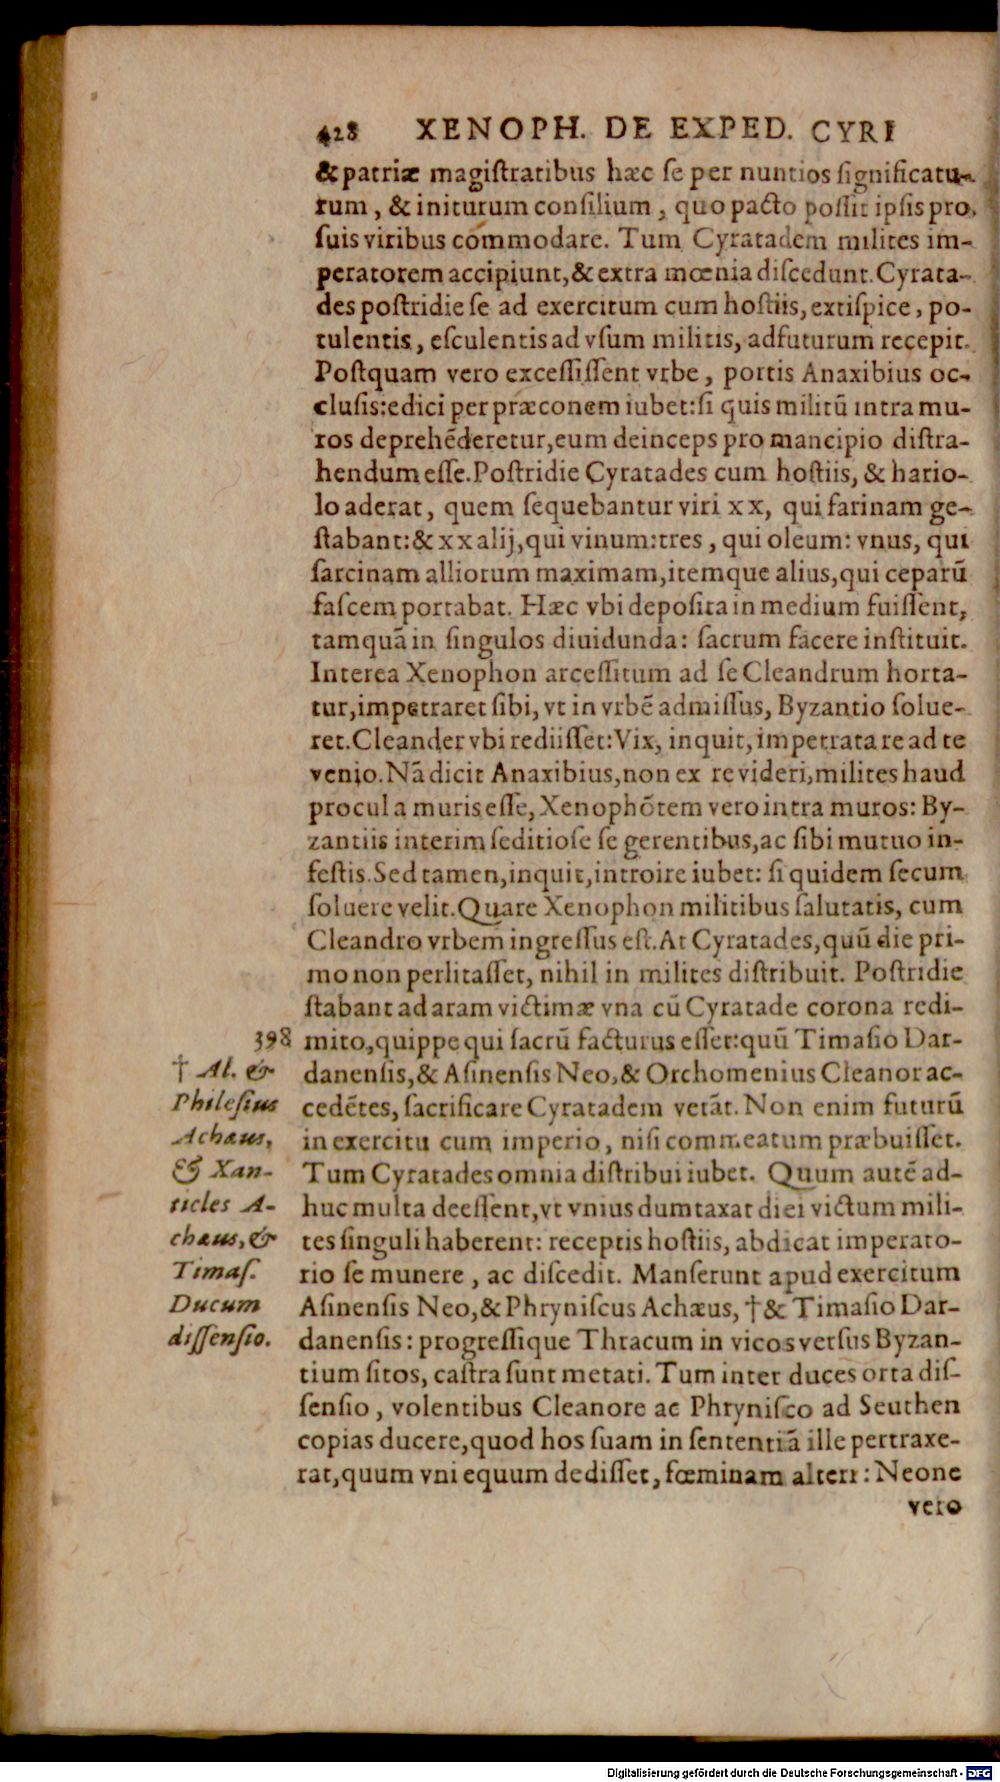 428 XENOPH. DE EXPED. CYRI
& patriæ magiſtratibus hæc ſe per nuntios ſignificatu-
rum, & initurum conſilium, quo pacto poſſit ipſis pro
ſuis viribus commodare. Tum Cyratadem milites im-
peratorem accipiunt, & extra mœnia diſcedunt. Cyrata-
des poſtridie ſe ad exercitum cum hoſtiis, extiſpice, po-
tulentis, eſculentis ad vſum militis, adfuturum recepit.
Poſtquam vero exceſſiſſent vrbe, portis Anaxibius oc-
cluſis: edici per præconem iubet: ſi quis militũ intra mu-
ros deprehẽderetur, eum deinceps pro mancipio diſtra-
hendum eſſe. Poſtridie Cyratades cum hoſtiis, & hario-
lo aderat, quem ſequebantur viri xx, qui farinam ge-
ſtabant: & xx alij, qui vinum: tres, qui oleum: vnus, qui
ſarcinam alliorum maximam, itemque alius, qui ceparũ
faſcem portabat. Hæc vbi depoſita in medium fuiſſent,
tamquã in ſingulos diuidunda: ſacrum facere inſtituit.
Interea Xenophon arceſſitum ad ſe Cleandrum horta-
tur, impetraret ſibi, vt in vrbẽ admiſſus, Byzantio ſolue-
ret. Cleander vbi rediiſſet: Vix, inquit, impetrata re ad te
venio. Nã dicit Anaxibius, non ex re videri, milites haud
procul a muris eſſe, Xenophõtem vero intra muros: By-
zantiis interim ſeditioſe ſe gerentibus, ac ſibi mutuo in-
feſtis. Sed tamen, inquit, introire iubet: ſi quidem ſecum
ſoluere velit. Quare Xenophon militibus ſalutatis, cum
Cleandro vrbem ingreſſus eſt. At Cyratades, quũ die pri-
mo non perlitaſſet, nihil in milites diſtribuit. Poſtridie
ſtabant ad aram victimæ vna cũ Cyratade corona redi-
398 mito, quippe qui ſacrũ facturus eſſet: quũ Timaſio Dar-
danenſis, & Aſinenſis Neo, & Orchomenius Cleanor ac-
cedẽtes, ſacrificare Cyratadem vetãt. Non enim futurũ
in exercitu cum imperio, niſi commeatum præbuiſſet.
Tum Cyratades omnia diſtribui iubet. Quum autẽ ad-
huc multa deeſſent, vt vnius dumtaxat diei victum mili-
tes ſinguli haberent: receptis hoſtiis, abdicat imperato-
rio ſe munere, ac diſcedit. Manſerunt apud exercitum
Aſinenſis Neo, & Phryniſcus Achæus, † & Timaſio Dar-
danenſis: progreſſique Thracum in vicos verſus Byzan-
tium ſitos, caſtra ſunt metati. Tum inter duces orta diſ-
ſenſio, volentibus Cleanore ac Phryniſco ad Seuthen
copias ducere, quod hos ſuam in ſententiã ille pertraxe-
rat, quum vni equum dediſſet, fœminam alteri: Neone
vero
† Al. &
Phileſius
Achæus,
& Xan-
ticles A-
chæus, &
Timaſ.
Ducum
diſſenſio.
Digitalisierung gefördert durch die Deutsche Forschungsgemeinschaft - DFG